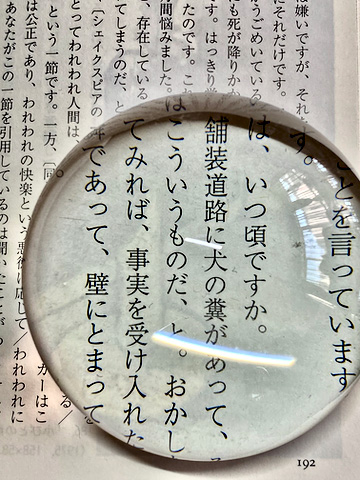 は嫌いですが、それ
にそれだけです。
がうごめいている
にも死が降りかか
す。はっきり
たのです。これ
間悩みました。
、存在している
てしまうのだ、と
（シェイクスピアの
とってわれわれ人間は、
という一節です。一方、〔同
は公正であり、われわれの快楽という悪徳に応じて／われわれに
あなたがこの一節を引用しているのは聞いたことが
ことを言っています
す。
は、いつ頃ですか。
舗装道路に犬の糞があって、
はこういうものだ、と。おかし
てみれば、事実を受け入れた
であって、壁にとまって
る／
カーはこ
192